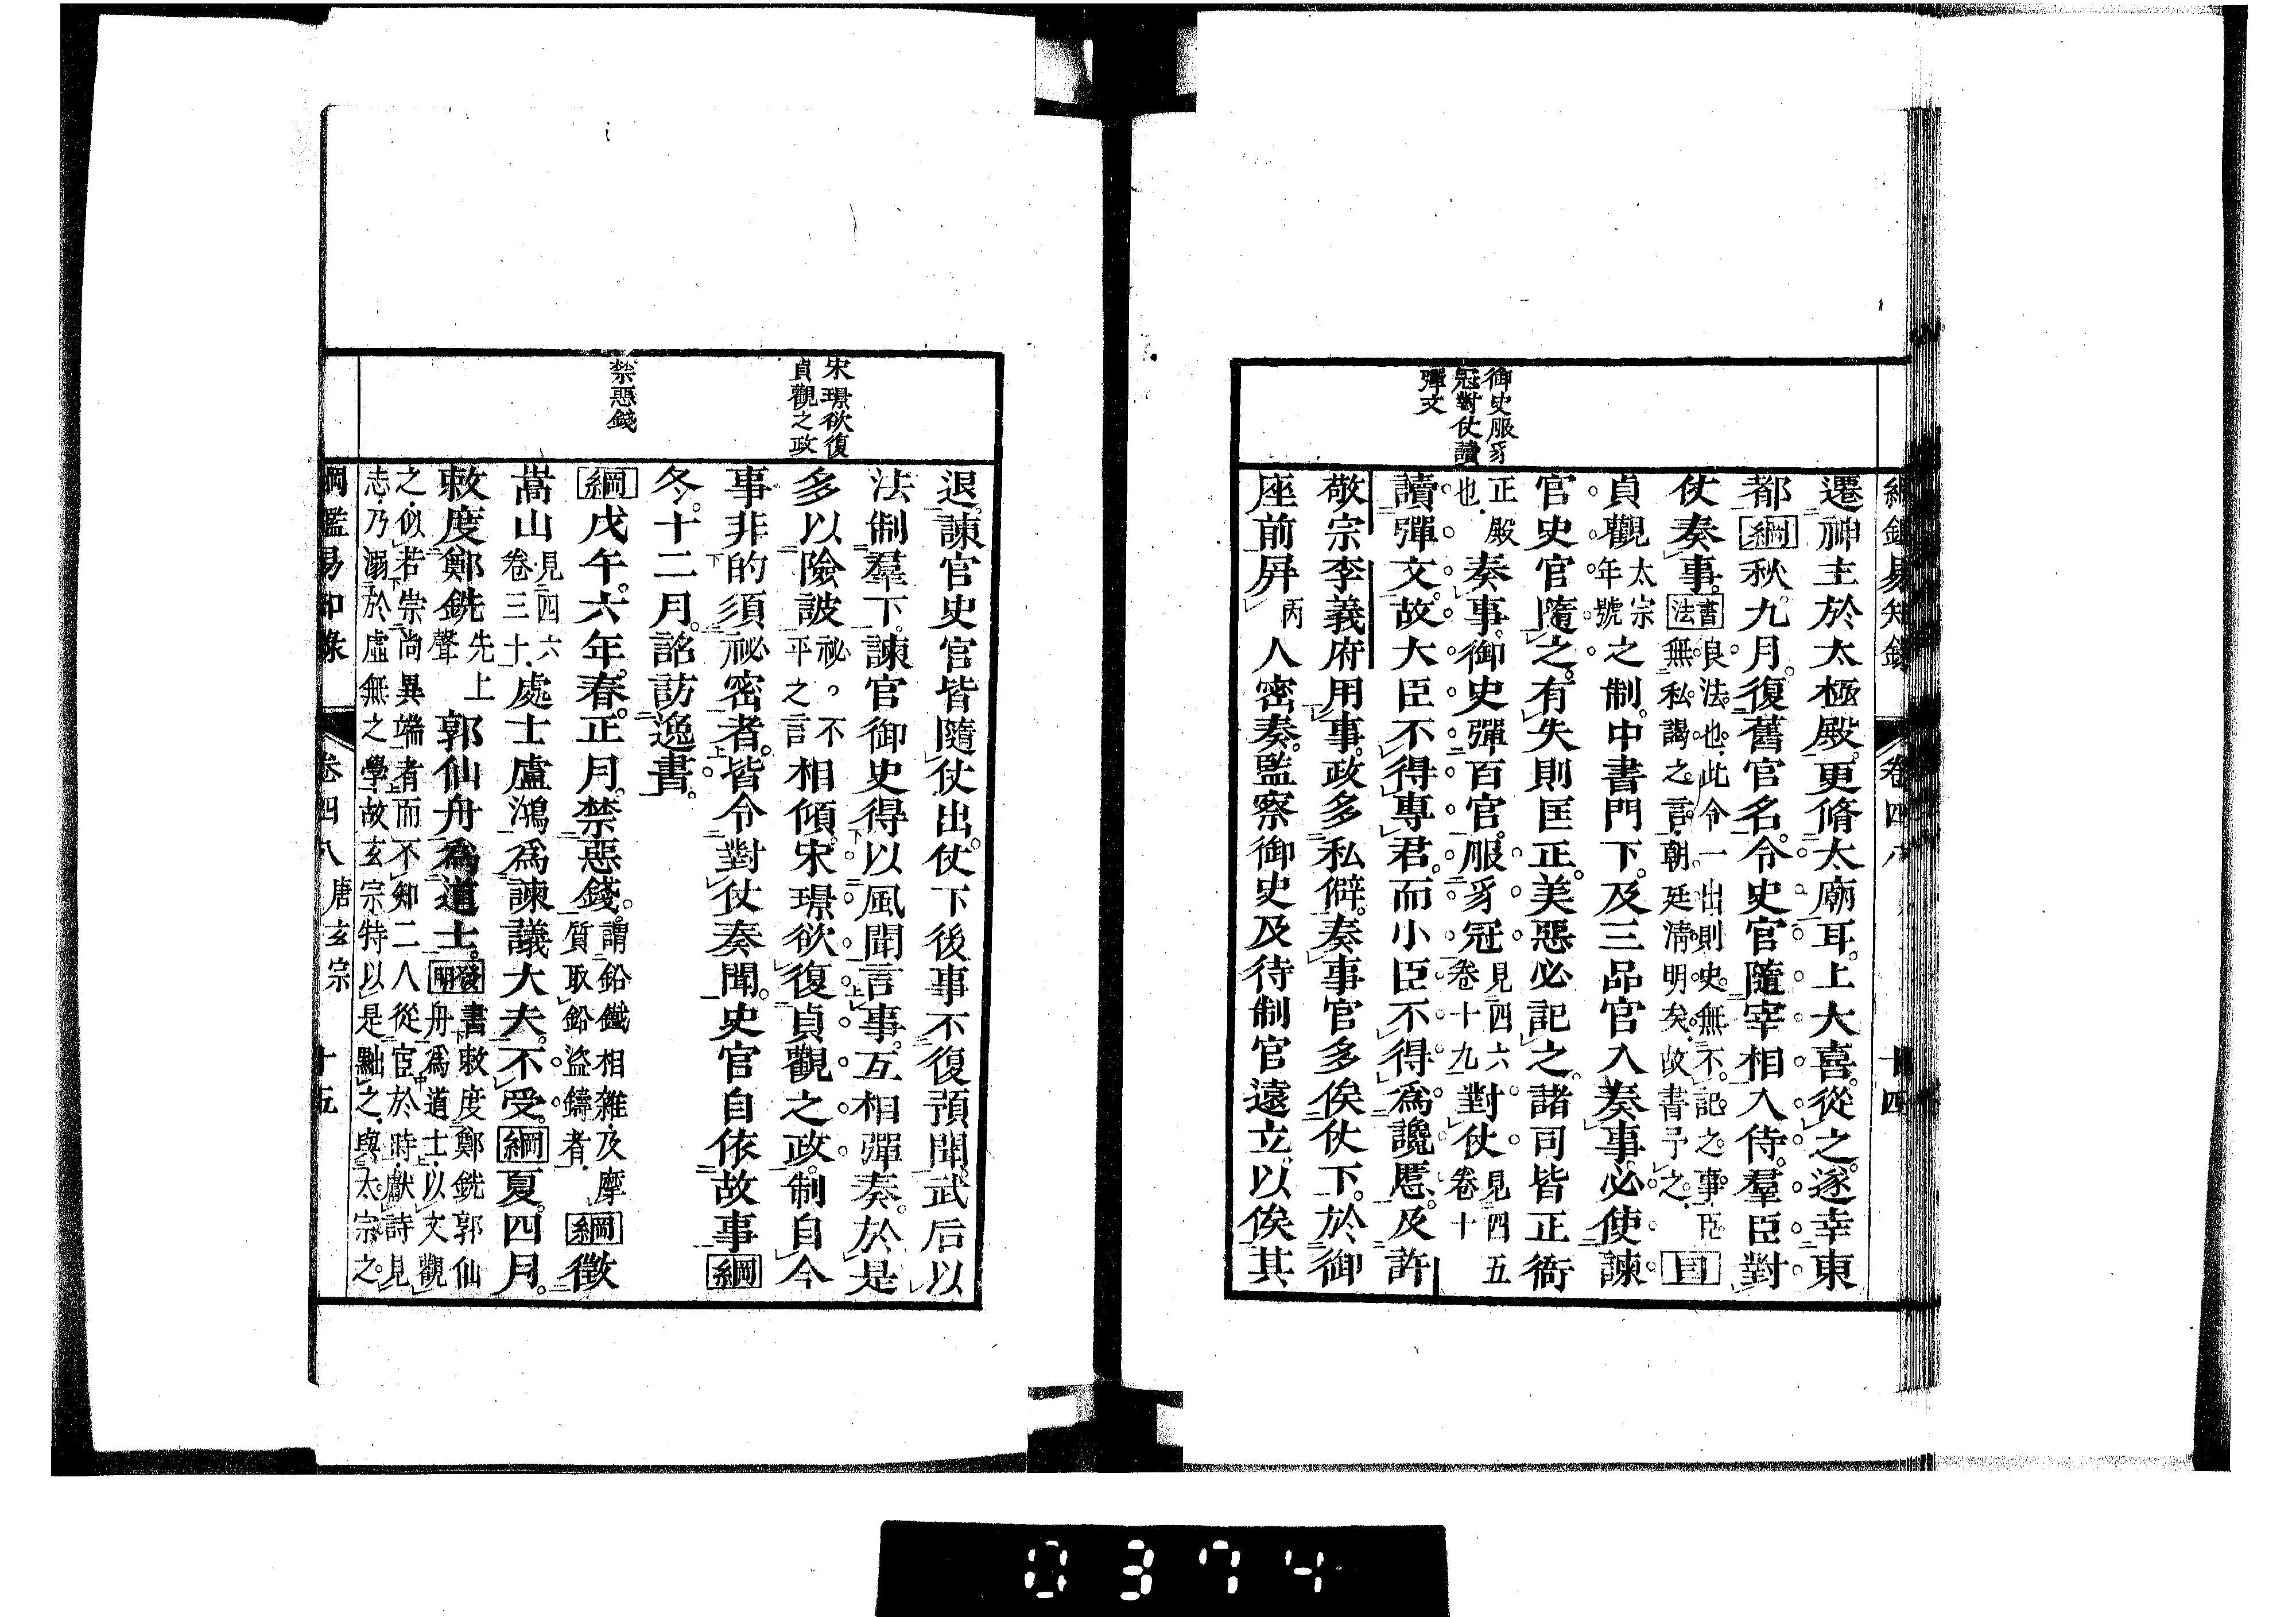 綱鑑易知錄　卷四八　十四
御史服豸
冠對仗讀
彈文
遷神主於太極殿。更脩太廟耳。上大喜。從之。遂幸東
都綱秋九月。復舊官名。令史官隨宰相入侍。羣臣對
仗奏事。書法良法也。此令一出則史無不記之事。臣
無私謁之言。朝廷淸明矣。故書予之。目
貞觀太宗年號之制。中書門下。及三品官入奏事。必使諫
官史官隨之。有失則匡正。美惡必記之。諸司皆正衙
正殿也。奏事。御史彈百官。服豸冠見四六卷十九對仗見四五卷十
讀彈文。故大臣不得專君。而小臣不得爲讒慝。及許
敬宗李義府用事。政多私僻。奏事官多俟仗下。於御
座前屛丙人密奏。監察御史及待制官遠立。以俟其
宋璟欲復
貞觀之政
禁惡錢
退。諫官史官皆隨仗出。仗下後事不復預聞。武后以
法制羣下。諫官御史得以風聞言事。互相彈奏。於是
多以險詖祕。不平之言相傾。宋璟欲復貞觀之政。制自今
事非的須祕密者。皆令對仗奏聞。史官自依故事綱
冬。十二月。詔訪逸書。
綱戊午。六年。春。正月。禁惡錢。謂鉛鐵相雜。及摩質取鉛盜鑄者。綱徵
嵩山見四六卷三十處士盧鴻爲諫議大夫。不受。綱夏。四月。
敕度鄭銑先上聲郭仙舟爲道士。發明書敕度鄭銑郭仙
舟爲道士。以文觀
之。似若崇尚異端者而不知二人從宦於時。獻詩見
志。乃溺於虛無之學。故玄宗特以是黜之。與太宗之
綱鑑易知錄　卷四八　唐玄宗　十五
0374